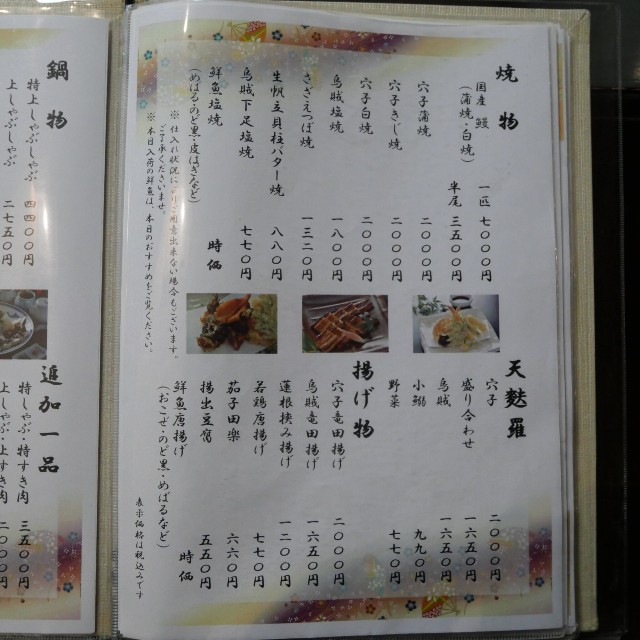 焼物
国産鰻 一匹 七〇〇〇円
(蒲焼・白焼) 半尾 三五〇〇円
穴子蒲焼 二〇〇〇円
穴子きじ焼 二〇〇〇円
穴子白焼 二〇〇〇円
烏賊塩焼 一八〇〇円
さざえつぼ焼 一三二〇円
生帆立貝柱バター焼 八八〇円
烏賊下足塩焼 七七〇円
鮮魚塩焼 時価
(めばる・のど黒・皮はぎなど)
※仕入れ状況によりご用意出来ない場合もございます。
ご了承くださいませ。
※本日入荷の鮮魚は、本日のおすすめをご覧ください。
天麩羅
穴子 二〇〇〇円
盛り合わせ 一六五〇円
烏賊 一六五〇円
小鰯 九九〇円
野菜 七七〇円
揚げ物
穴子竜田揚げ 二〇〇〇円
烏賊竜田揚げ 一六五〇円
蓮根挟み揚げ 一二〇〇円
若鶏唐揚げ 七七〇円
茄子田楽 六六〇円
揚出豆腐 五五〇円
鮮魚唐揚げ 時価
(おこぜ・のど黒・めばるなど)
表示価格は税込みです
鍋物
特上しゃぶしゃぶ 四四〇〇円
上しゃぶしゃぶ 二七五〇円
追加一品
特しゃぶ・特すき肉 三五〇〇円
上しゃぶ・上すき肉 二〇〇〇円